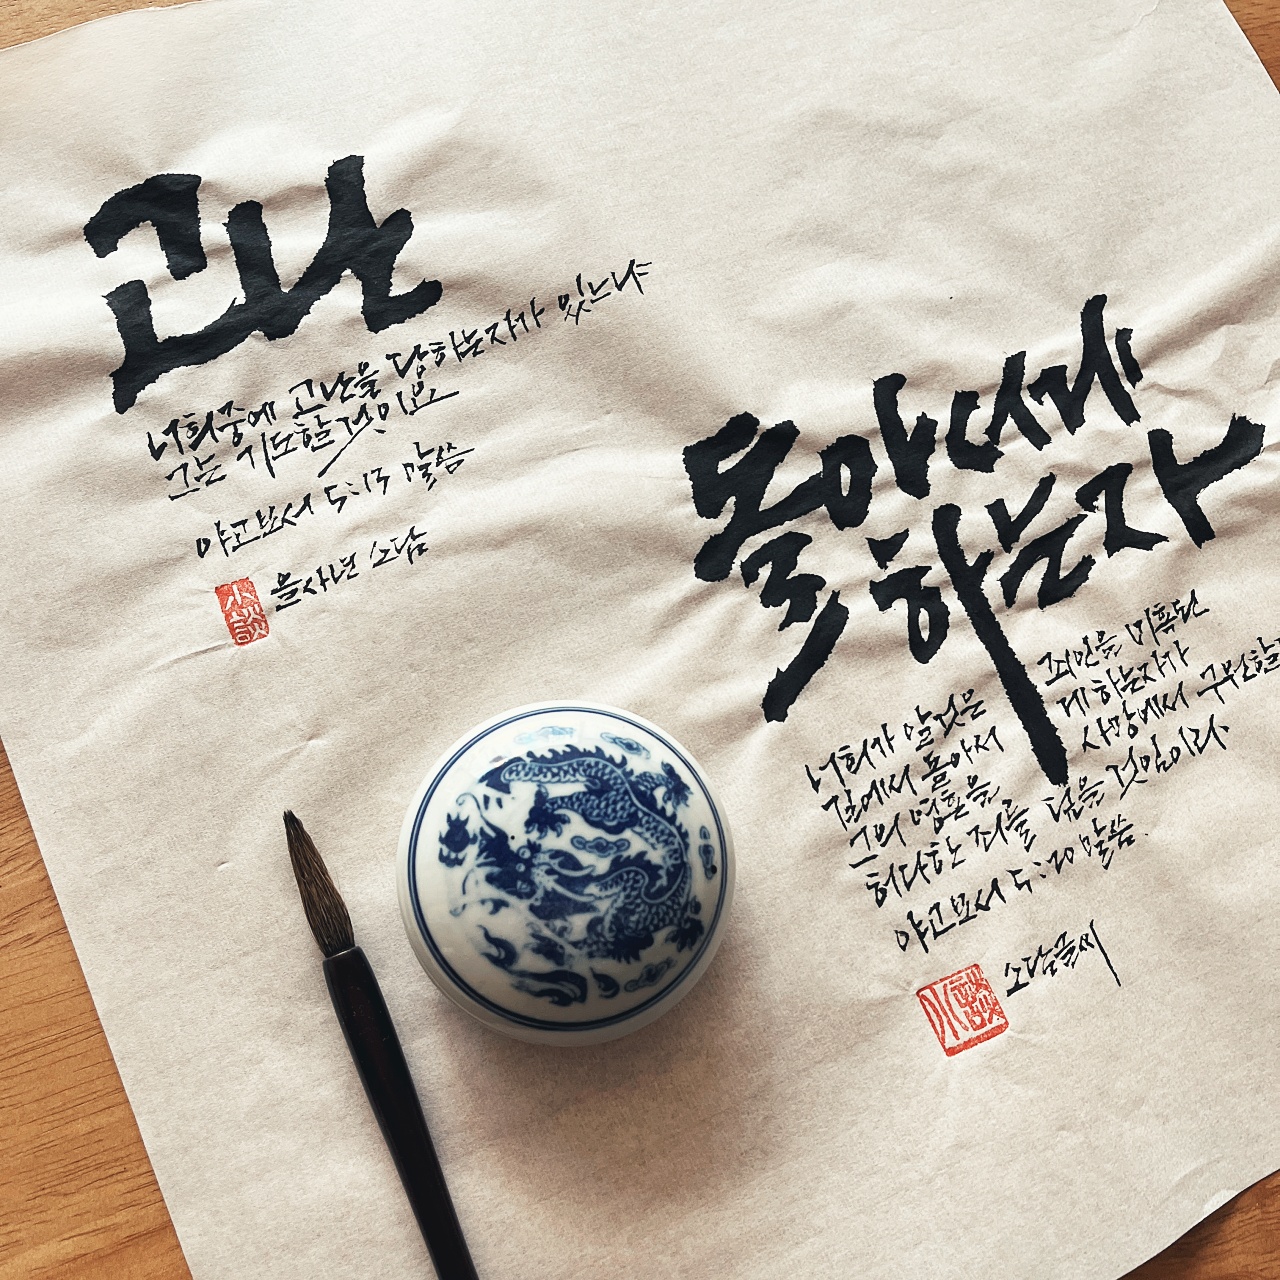 고난
너희중에 고난을 당하는자가 있느냐
그는 기도할것이요
야고보서 5:13 말씀
을사년 소담
小談
돌아서게
하는자
너희가 알것은
죄인을 미혹된
길에서 돌아서
게 하는자가
그의 영혼을
사망에서 구원할
허다한 죄를 덮을 것임이라
야고보서 5:20 말씀
소담글씨
小談